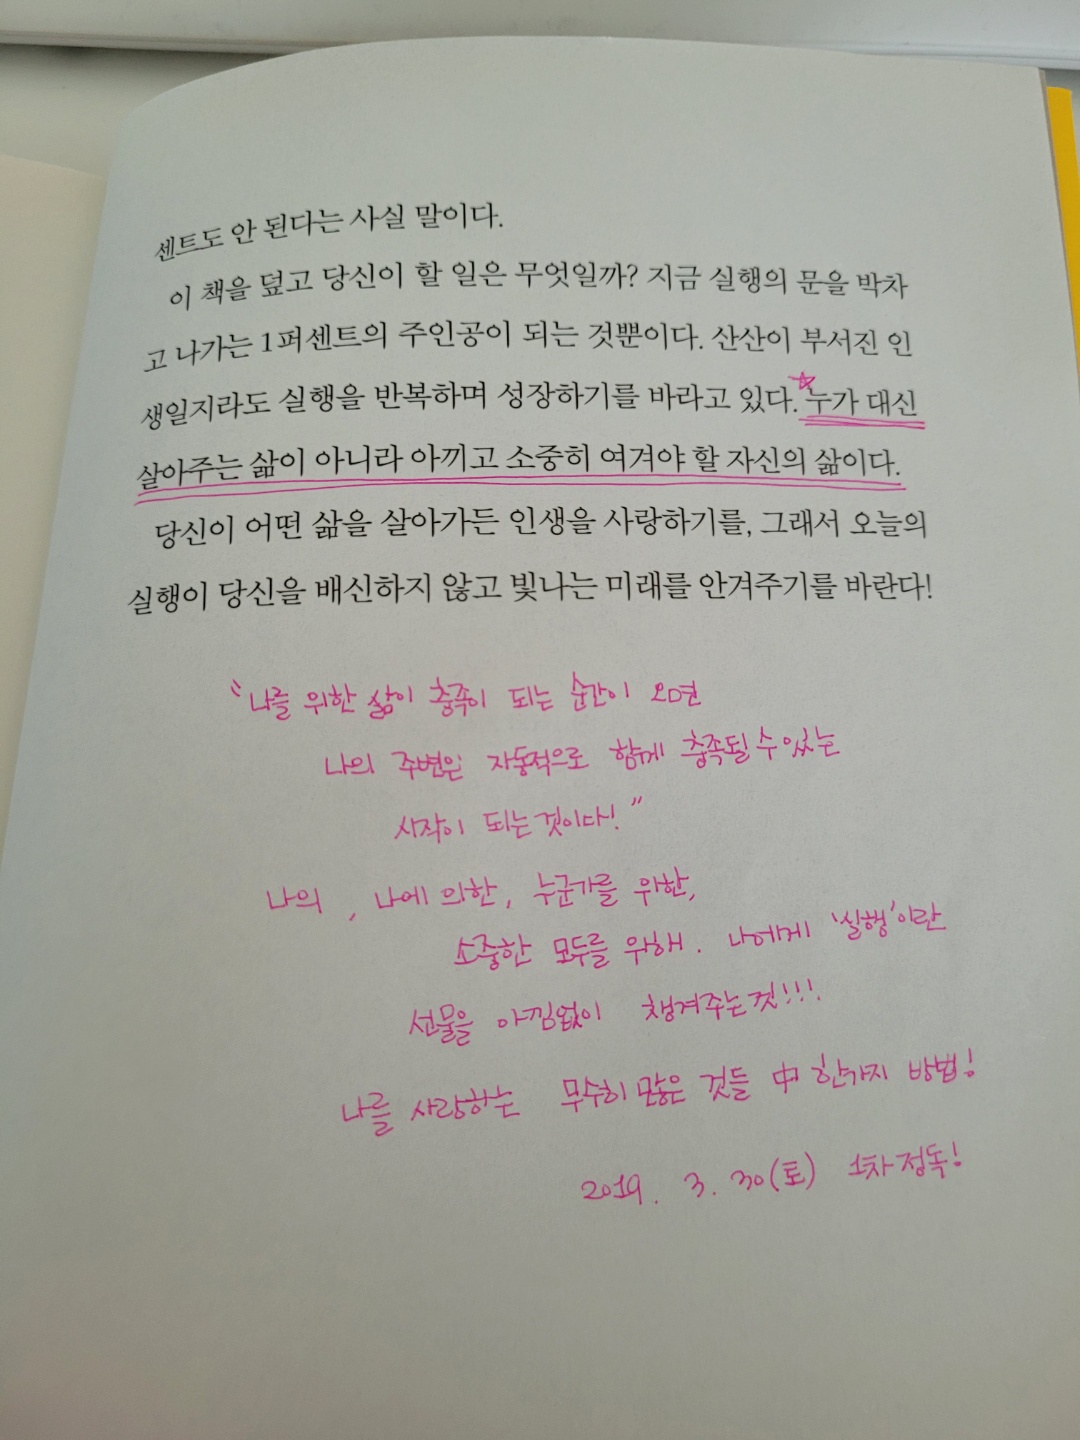 센트도 안 된다는 사실 말이다.
이 책을 덮고 당신이 할 일은 무엇일까? 지금 실행의 문을 박차
고 나가는 1퍼센트의 주인공이 되는 것뿐이다. 산산이 부서진 인
생일지라도 실행을 반복하며 성장하기를 바라고 있다. 누가 대신
살아주는 삶이 아니라 아끼고 소중히 여겨야 할 자신의 삶이다.
당신이 어떤 삶을 살아가든 인생을 사랑하기를, 그래서 오늘의
실행이 당신을 배신하지 않고 빛나는 미래를 안겨주기를 바란다!
"나를 위한 삶이 충족이 되는 순간이 오면
나의 주변은 자동적으로 함께 충족될 수 있는
시작이 되는 것이다!"
나의 , 나에 의한, 누군가를 위한,
소중한 모두를 위해. 나에게 '실행'이란
선물을 아낌없이 챙겨주는 것!!!
나를 사랑하는 무수히 많은 것들 中 한가지 방법!
2019. 3. 30(토) 1차 정독!